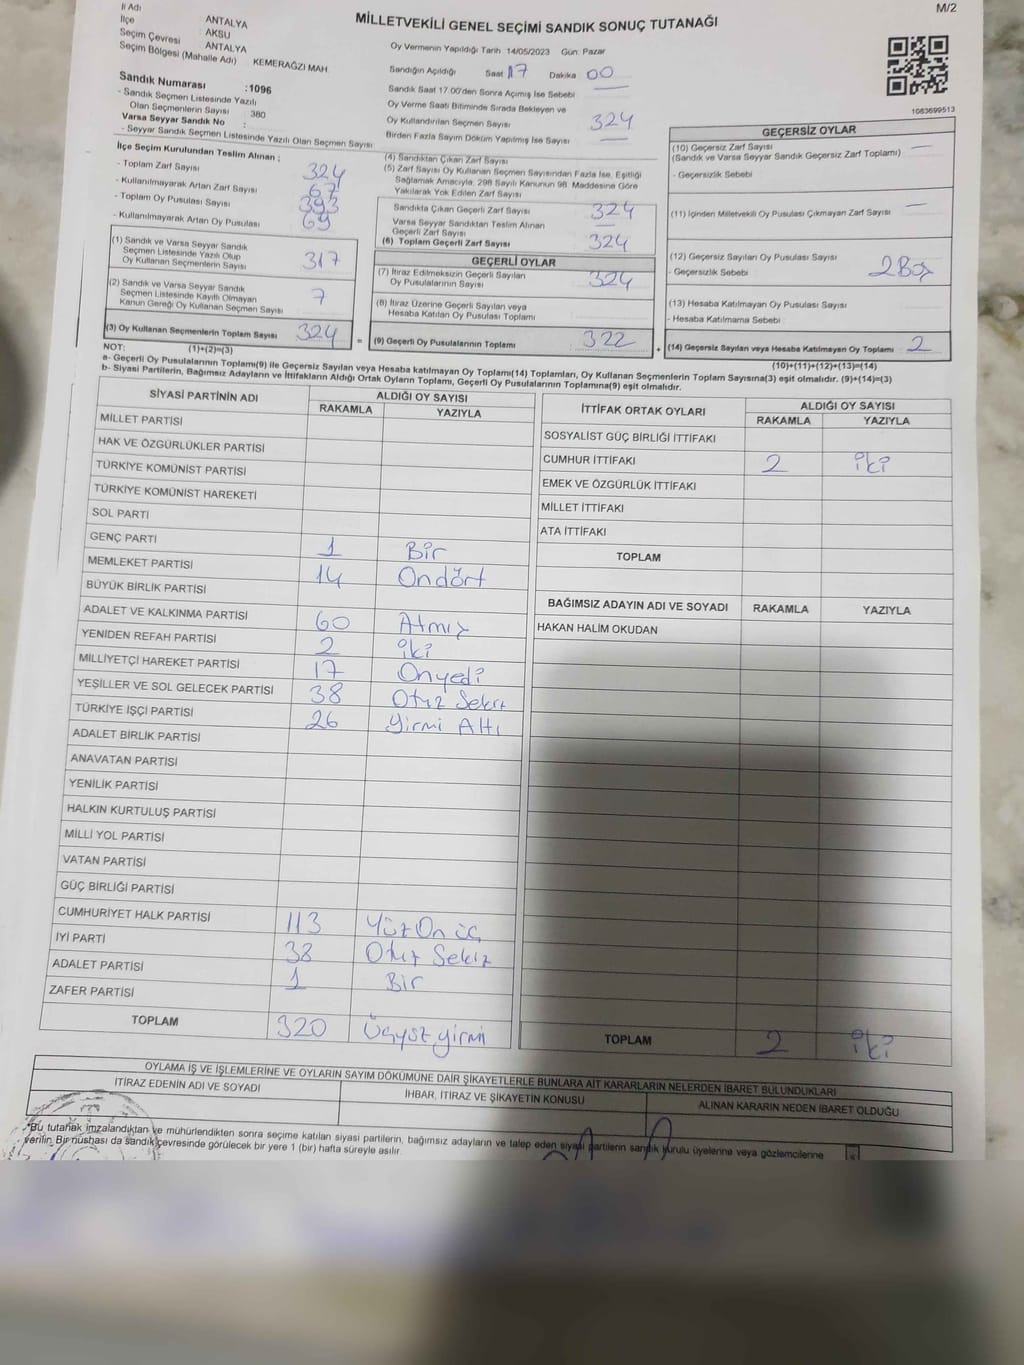 M/2
İl Adı ANTALYA
İlçe AKSU
Seçim Çevresi ANTALYA
Seçim Bölgesi (Mahalle Adı) KEMERAĞZI MAH
MİLLETVEKİLİ GENEL SEÇİMİ SANDIK SONUÇ TUTANAĞI
Oy Vermenin Yapıldığı Tarih 14/05/2023 Gün: Pazar
Sandığın Açıldığı Saat 17 Dakika 00
Sandık Saat 17.00'den Sonra Açılmış İse Sebebi
Oy Verme Saati Bitiminde Sırada Bekleyen ve
Oy Kullandırılan Seçmen Sayısı 324
Birden Fazla Sayım Döküm Yapılmış İse Sayısı
1083699513
Sandık Numarası :1096
- Sandık Seçmen Listesinde Yazılı
Olan Seçmenlerin Sayısı : 380
Varsa Seyyar Sandık No :
- Seyyar Sandık Seçmen Listesinde Yazılı Olan Seçmen Sayısı
İlçe Seçim Kurulundan Teslim Alınan ;
- Toplam Zarf Sayısı 324
- Kullanılmayarak Artan Zarf Sayısı 67
- Toplam Oy Pusulası Sayısı 393
- Kullanılmayarak Artan Oy Pusulası 69
(1) Sandık ve Varsa Seyyar Sandık
Seçmen Listesinde Yazılı Olup
Oy Kullanan Seçmenlerin Sayısı 317
(2) Sandık ve Varsa Seyyar Sandık
Seçmen Listesinde Kayıtlı Olmayan
Kanun Gereği Oy Kullanan Seçmen Sayısı 7
(3) Oy Kullanan Seçmenlerin Toplam Sayısı 324 =
(4) Sandıktan Çıkan Zarf Sayısı
(5) Zarf Sayısı Oy Kullanan Seçmen Sayısından Fazla İse, Eşitliği
Sağlamak Amacıyla, 298 Sayılı Kanunun 98. Maddesine Göre
Yakılarak Yok Edilen Zarf Sayısı
Sandıkta Çıkan Geçerli Zarf Sayısı 324
Varsa Seyyar Sandıktan Teslim Alınan
Geçerli Zarf Sayısı
(6) Toplam Geçerli Zarf Sayısı 324
GEÇERLİ OYLAR
(7) İtiraz Edilmeksizin Geçerli Sayılan
Oy Pusulalarının Sayısı 324
(8) İtiraz Üzerine Geçerli Sayılan veya
Hesaba Katılan Oy Pusulası Toplamı
(9) Geçerli Oy Pusulalarının Toplamı 322 +
GEÇERSİZ OYLAR
(10) Geçersiz Zarf Sayısı —
(Sandık ve Varsa Seyyar Sandık Geçersiz Zarf Toplamı)
- Geçersizlik Sebebi
(11) İçinden Milletvekili Oy Pusulası Çıkmayan Zarf Sayısı —
(12) Geçersiz Sayılan Oy Pusulası Sayısı 2 Boş
- Geçersizlik Sebebi
(13) Hesaba Katılmayan Oy Pusulası Sayısı
- Hesaba Katılmama Sebebi :
(14) Geçersiz Sayılan veya Hesaba Katılmayan Oy Toplamı 2
NOT: (1)+(2)=(3) (10)+(11)+(12)+(13)=(14)
a- Geçerli Oy Pusulalarının Toplamı(9) ile Geçersiz Sayılan veya Hesaba katılmayan Oy Toplamı(14) Toplamları, Oy Kullanan Seçmenlerin Toplam Sayısına(3) eşit olmalıdır. (9)+(14)=(3)
b- Siyasi Partilerin, Bağımsız Adayların ve İttifakların Aldığı Ortak Oyların Toplamı, Geçerli Oy Pusulalarının Toplamına(9) eşit olmalıdır.
SİYASİ PARTİNİN ADI ALDIĞI OY SAYISI
RAKAMLA YAZIYLA
MİLLET PARTİSİ
HAK VE ÖZGÜRLÜKLER PARTİSİ
TÜRKİYE KOMÜNİST PARTİSİ
TÜRKİYE KOMÜNİST HAREKETİ
SOL PARTİ
GENÇ PARTİ 1 Bir
MEMLEKET PARTİSİ 14 Ondört
BÜYÜK BİRLİK PARTİSİ
ADALET VE KALKINMA PARTİSİ 60 Atmış
YENİDEN REFAH PARTİSİ 2 iki
MİLLİYETÇİ HAREKET PARTİSİ 17 Onyedi
YEŞİLLER VE SOL GELECEK PARTİSİ 38 Otuz Sekiz
TÜRKİYE İŞÇİ PARTİSİ 26 Yirmi Altı
ADALET BİRLİK PARTİSİ
ANAVATAN PARTİSİ
YENİLİK PARTİSİ
HALKIN KURTULUŞ PARTİSİ
MİLLİ YOL PARTİSİ
VATAN PARTİSİ
GÜÇ BİRLİĞİ PARTİSİ
CUMHURİYET HALK PARTİSİ 113 Yüz On üç
İYİ PARTİ 38 Otuz Sekiz
ADALET PARTİSİ 1 Bir
ZAFER PARTİSİ
TOPLAM 320 Üçyüzyirmi
İTTİFAK ORTAK OYLARI ALDIĞI OY SAYISI
RAKAMLA YAZIYLA
SOSYALİST GÜÇ BİRLİĞİ İTTİFAKI
CUMHUR İTTİFAKI 2 iki
EMEK VE ÖZGÜRLÜK İTTİFAKI
MİLLET İTTİFAKI
ATA İTTİFAKI
TOPLAM
BAĞIMSIZ ADAYIN ADI VE SOYADI RAKAMLA YAZIYLA
HAKAN HALİM OKUDAN
TOPLAM 2 iki
OYLAMA İŞ VE İŞLEMLERİNE VE OYLARIN SAYIM DÖKÜMÜNE DAİR ŞİKAYETLERLE BUNLARA AİT KARARLARIN NELERDEN İBARET BULUNDUKLARI
İTİRAZ EDENİN ADI VE SOYADI İHBAR, İTİRAZ VE ŞİKAYETİN KONUSU ALINAN KARARIN NEDEN İBARET OLDUĞU
*Bu tutanak imzalandıktan ve mühürlendikten sonra seçime katılan siyasi partilerin, bağımsız adayların ve talep eden siyasi partilerin sandık kurulu üyelerine veya gözlemcilerine
verilir. Bir nüshası da sandık çevresinde görülecek bir yere 1 (bir) hafta süreyle asılır.